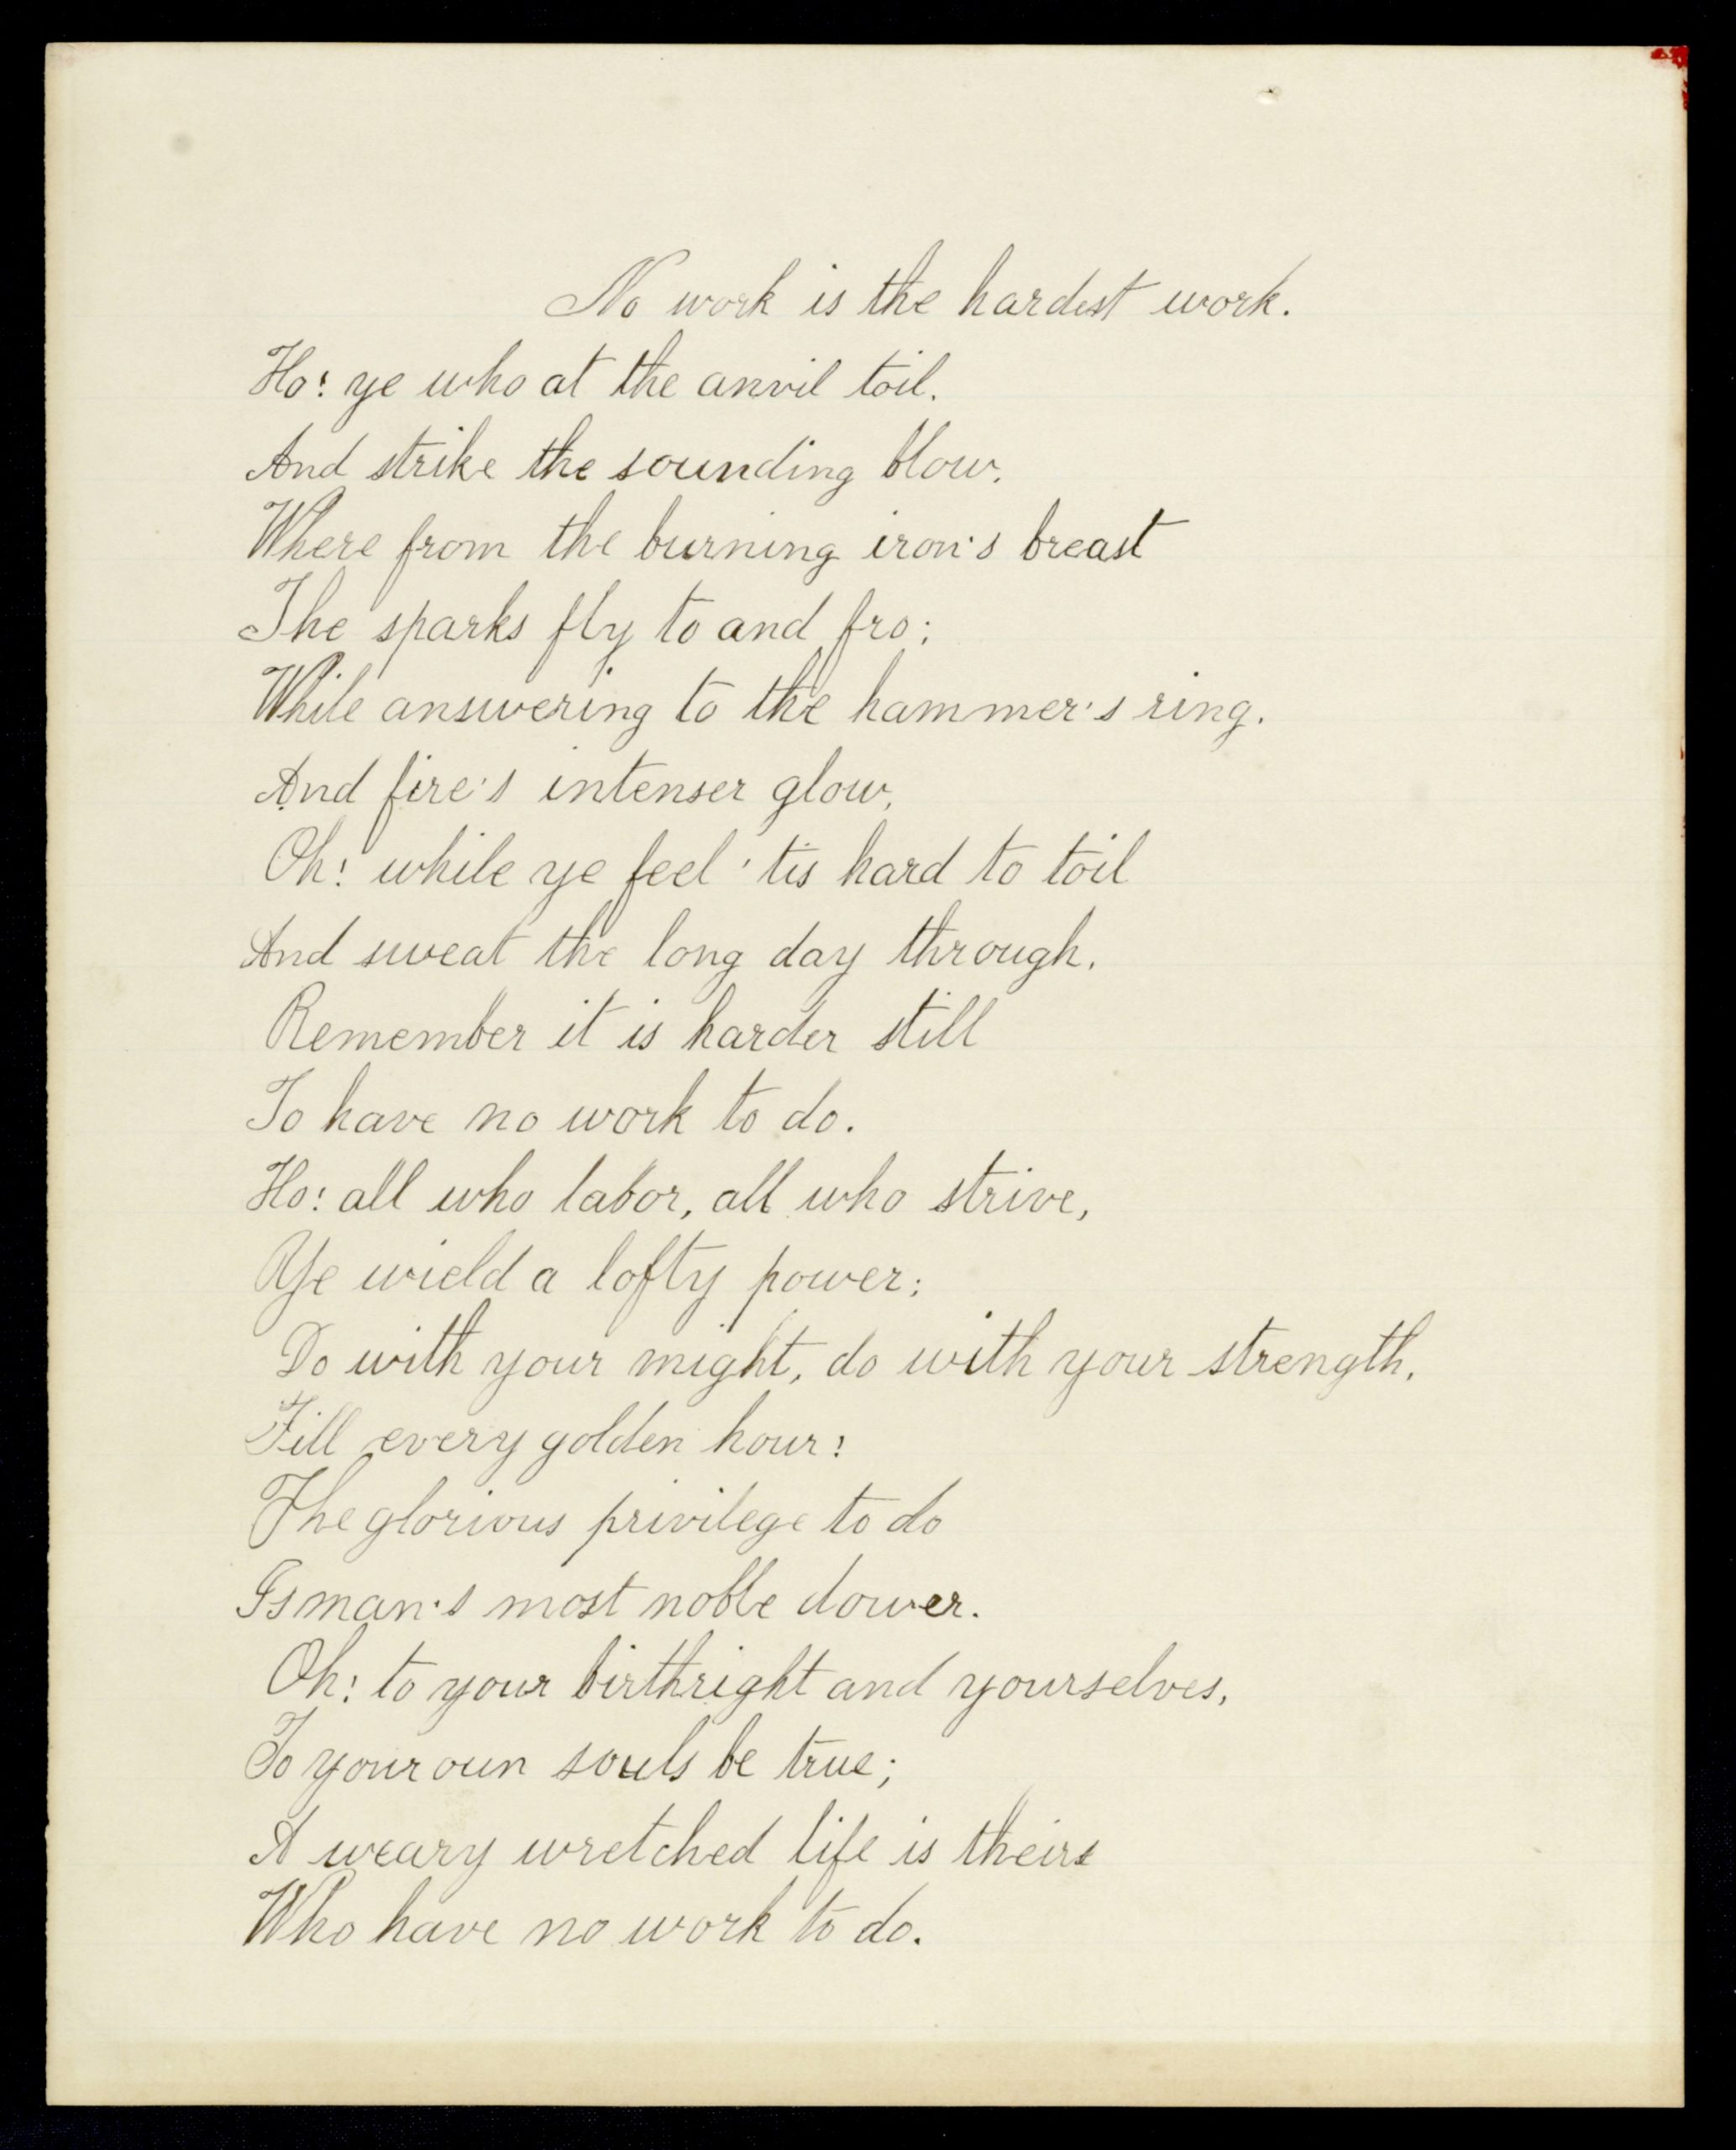 No work is the hardest work.
Ho! ye who at the anvil toil.
And strike the sounding blow,
Where from the burning iron's breast
The sparks fly to and fro;
While answering to the hammer's ring.
And fire's intenser glow,
Oh! while ye feel 'tis hard to toil
And sweat the long day through,
Remember it is harder still
To have no work to do.
Ho! all who labor, all who strive,
Ye wield a lofty power;
Do with your might, do with your strength,
Fill every golden hour!
The glorious privilege to do
Is man's most noble dower.
Oh! to your birthright and yourselves,
To your own souls be true;
A weary wretched life is theirs
Who have no work to do.